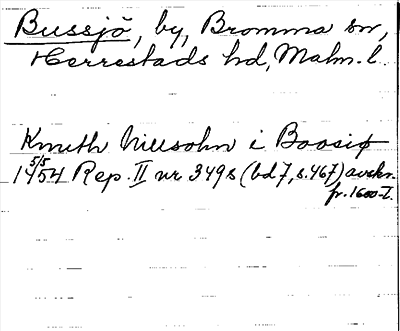 Bussjö, by, Bromma sn,
Herrestads hd, Malm. l.
Knuth Nillsohn i Boosiø
5/5
1454 Rep. II nr 349s (bd 7, s. 467) avskr.
fr. 1600-t.